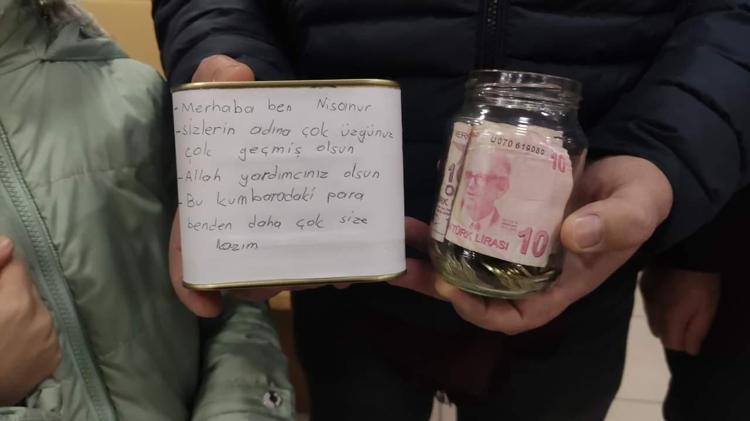 - Merhaba ben Nisanur
- Sizlerin adına çok üzgünüz
çok geçmiş olsun
- Allah yardımcınız olsun
- Bu kumbaradaki para
benden daha çok size
lazım
U070 619080
10
TÜRK LİRASI
10